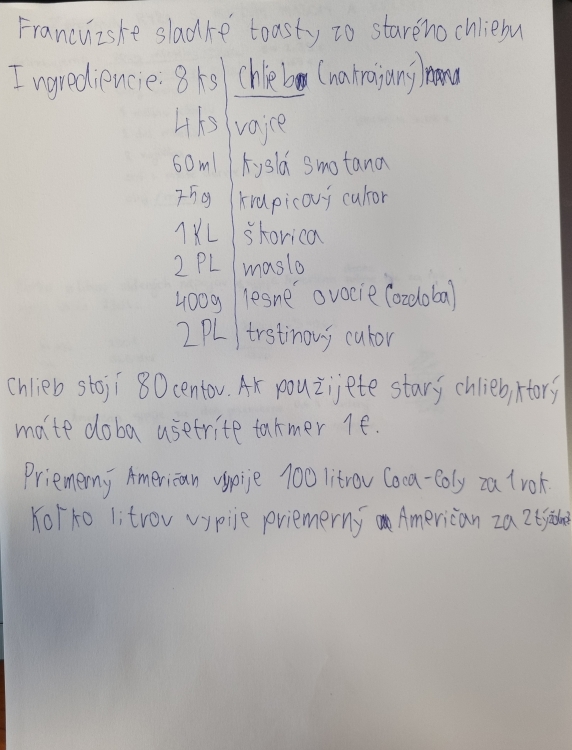 Francúzske sladké toasty zo starého chliebu
Ingrediencie: 8 ks chlieb (nakrájaný)
4 ks vajce
60ml kyslá smotana
75g krupicový cukor
1 KL škorica
2 PL maslo
400g lesné ovocie (ozdoba)
2 PL trstinový cukor
Chlieb stojí 80 centov. Ak použijete starý chlieb, ktorý
máte doba ušetríte takmer 1 €.
Priemerný Američan vypije 100 litrov Coca-Coly za 1 rok.
Koľko litrov vypije priemerný Američan za 2